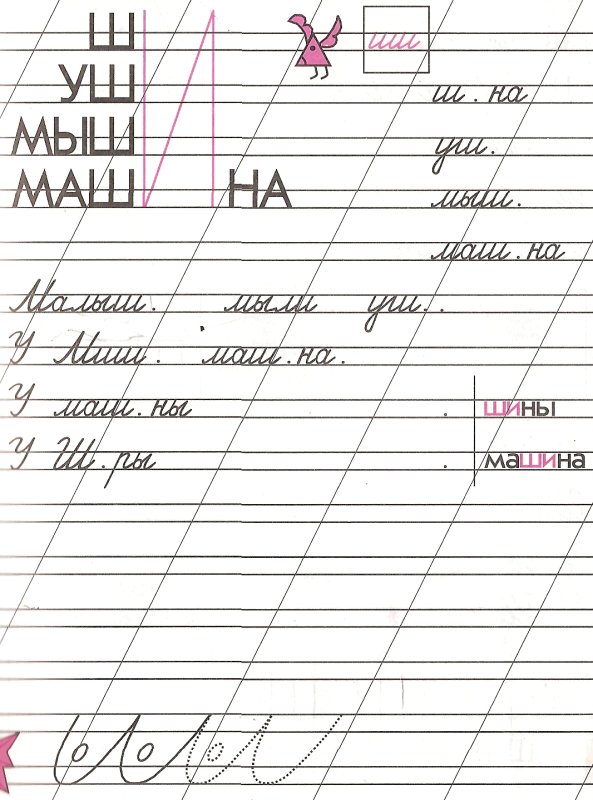 Ш
УШ
МЫШ
МАШ И НА
ши
ш.на
уш.
мыш.
маш.на
Малыш. мыли уш..
У Миш. маш.на.
У маш.ны . шины
У Ш.ры . машина